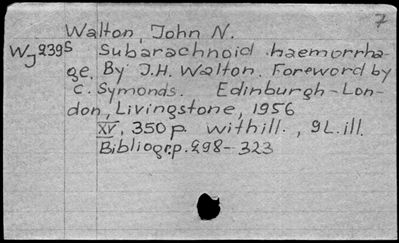 7
Walton, John N.
WJ 239S Subarachnoid haemorrha-
ge. By J.H. Walton. Foreword by
C. Symonds. Edinburgh-Lon-
don, Livingstone, 1956
XV, 350 p. withill., 9L.ill.
Bibliogr.p.298-323